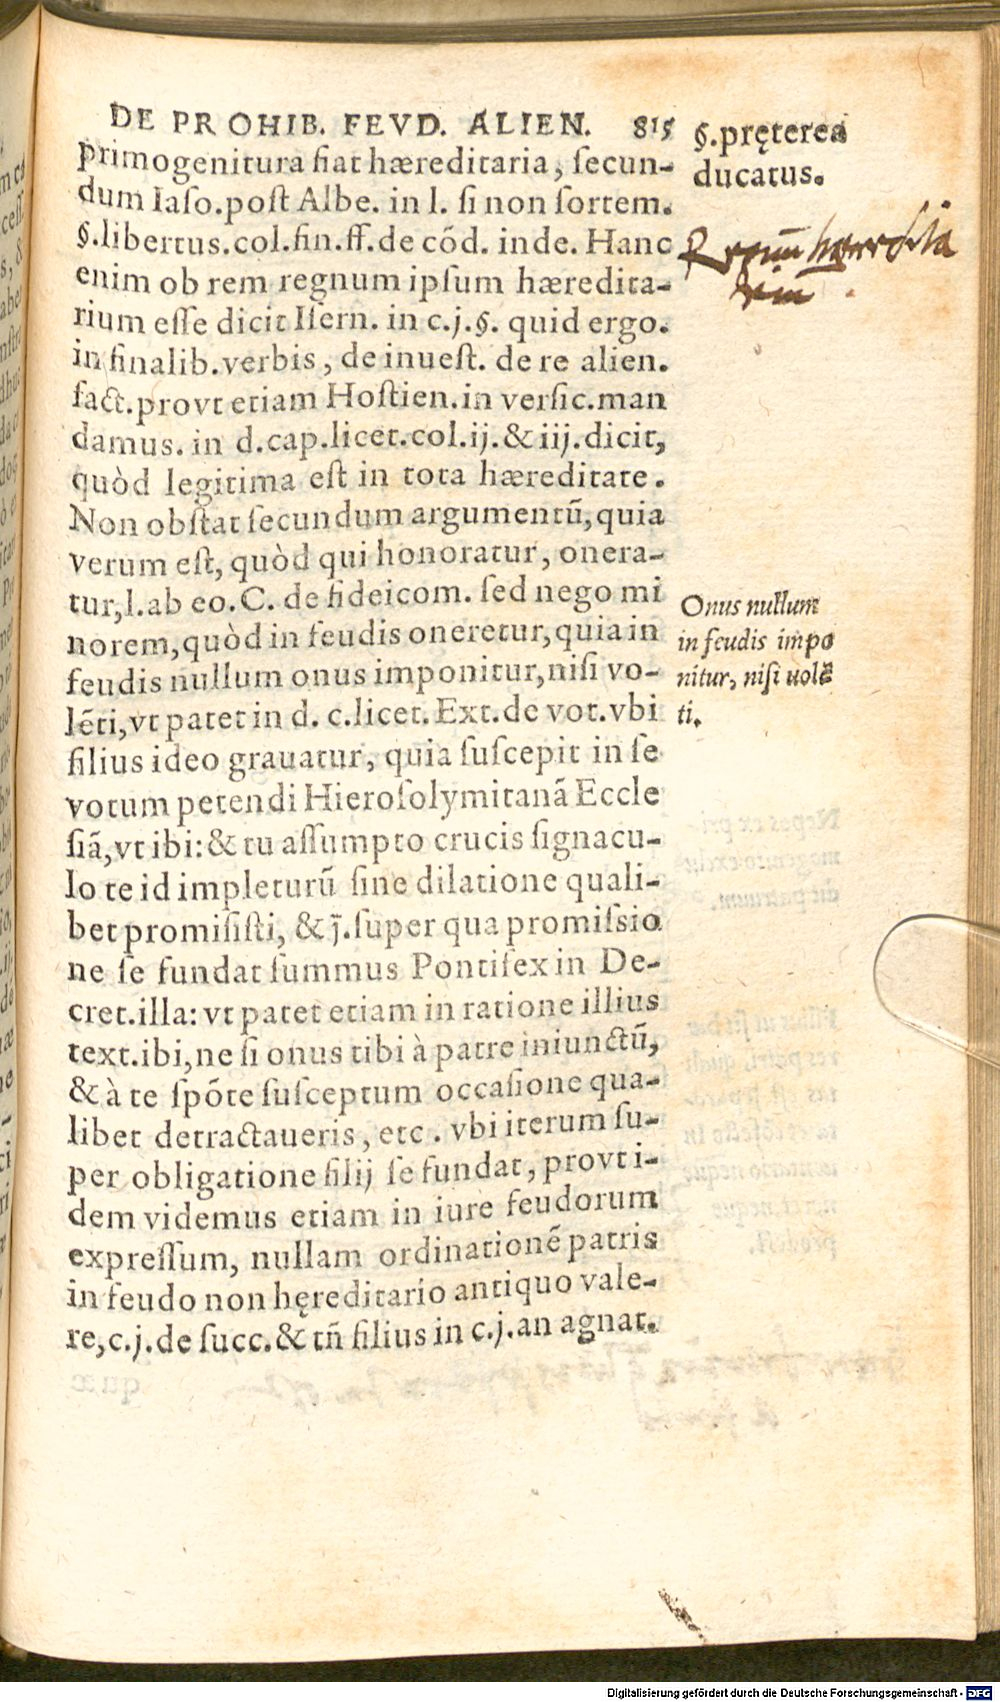 DE PROHIB. FEVD. ALIEN. 815
§.pręterea
ducatus.
primogenitura fiat hæreditaria, secun-
dum Iaso.post Albe. in l. si non sortem.
§.libertus.col.fin.ff.de cōd. inde. Hanc
enim ob rem regnum ipsum hæredita-
rium esse dicit Isern. in c.j.§. quid ergo.
in finalib.verbis, de inuest. de re alien.
fact.provt etiam Hostien.in versic.man
damus. in d.cap.licet.col.ij.&iij.dicit,
quòd legitima est in tota hæreditate.
Non obstat secundum argumentũ,quia
verum est, quòd qui honoratur, onera-
tur,l.ab eo.C. de fideicom. sed nego mi
norem,quòd in feudis oneretur,quia in
feudis nullum onus imponitur,nisi vo-
lēti,vt patet in d. c.licet.Ext.de vot.vbi
filius ideo grauatur, quia suscepit in se
votum petendi Hierosolymitanā Eccle
siā,vt ibi:& tu assumpto crucis signacu-
lo te id impleturũ sine dilatione quali-
bet promisisti, & j̄.super qua promissio
ne se fundat summus Pontifex in De-
cret.illa: vt patet etiam in ratione illius
text.ibi,ne si onus tibi à patre iniunctũ,
& à te spōte susceptum occasione qua-
libet detractaueris, etc. vbi iterum su-
per obligatione filij se fundat, provt i-
dem videmus etiam in iure feudorum
expressum, nullam ordinationē patris
in feudo non hęreditario antiquo vale-
re,c.j.de succ.& tñ filius in c.j.an agnat.
Onus nullum
in feudis impo
nitur, nisi uolē
ti.